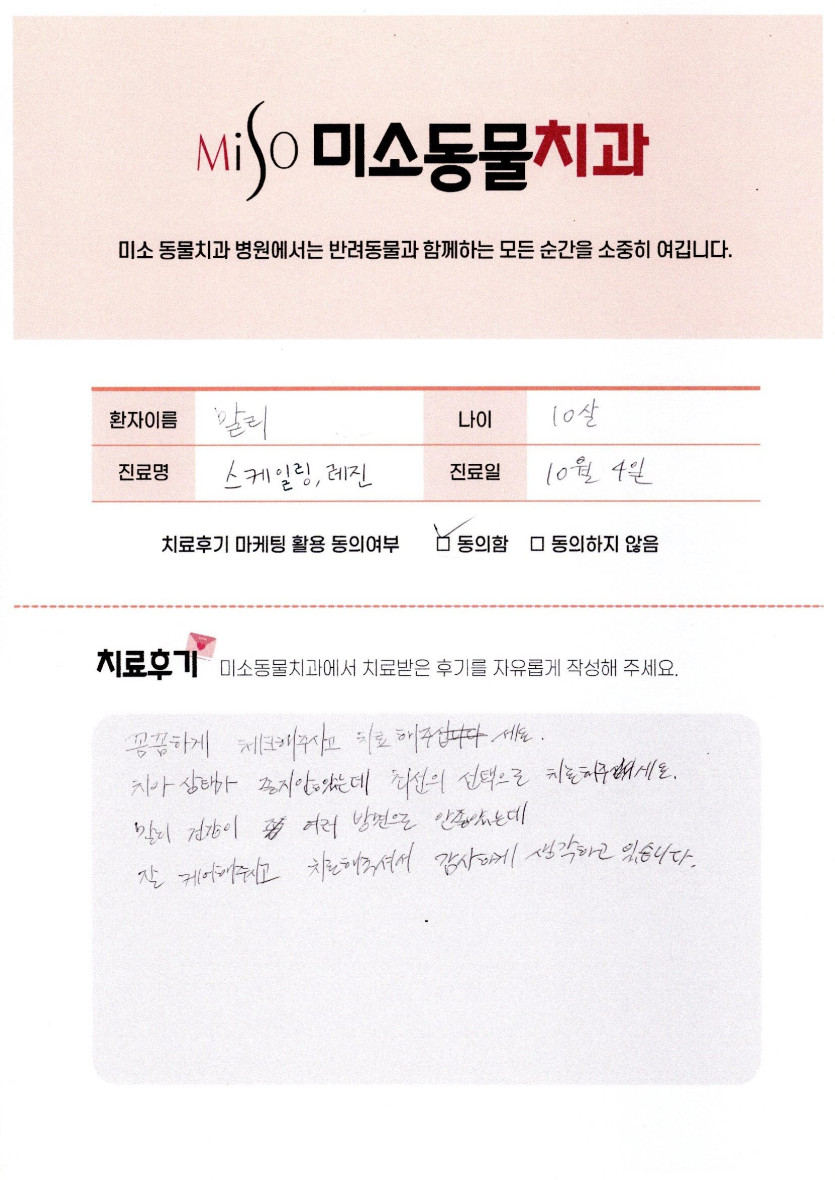 MiSO 미소동물치과
미소 동물치과 병원에서는 반려동물과 함께하는 모든 순간을 소중히 여깁니다.
환자이름 말리 나이 10살
진료명 스케일링, 레진 진료일 10월 4일
치료후기 마케팅 활용 동의여부 ☑ 동의함 □ 동의하지 않음
치료후기 미소동물치과에서 치료받은 후기를 자유롭게 작성해 주세요.
꼼꼼하게 체크해주시고 치료해주세요.
치아 상태가 좋지않았는데 최선의 선택으로 치료해주세요.
말리 건강이 여러 방면으로 안좋았는데
잘 케어해주시고 치료해주셔서 감사하게 생각하고 있습니다.